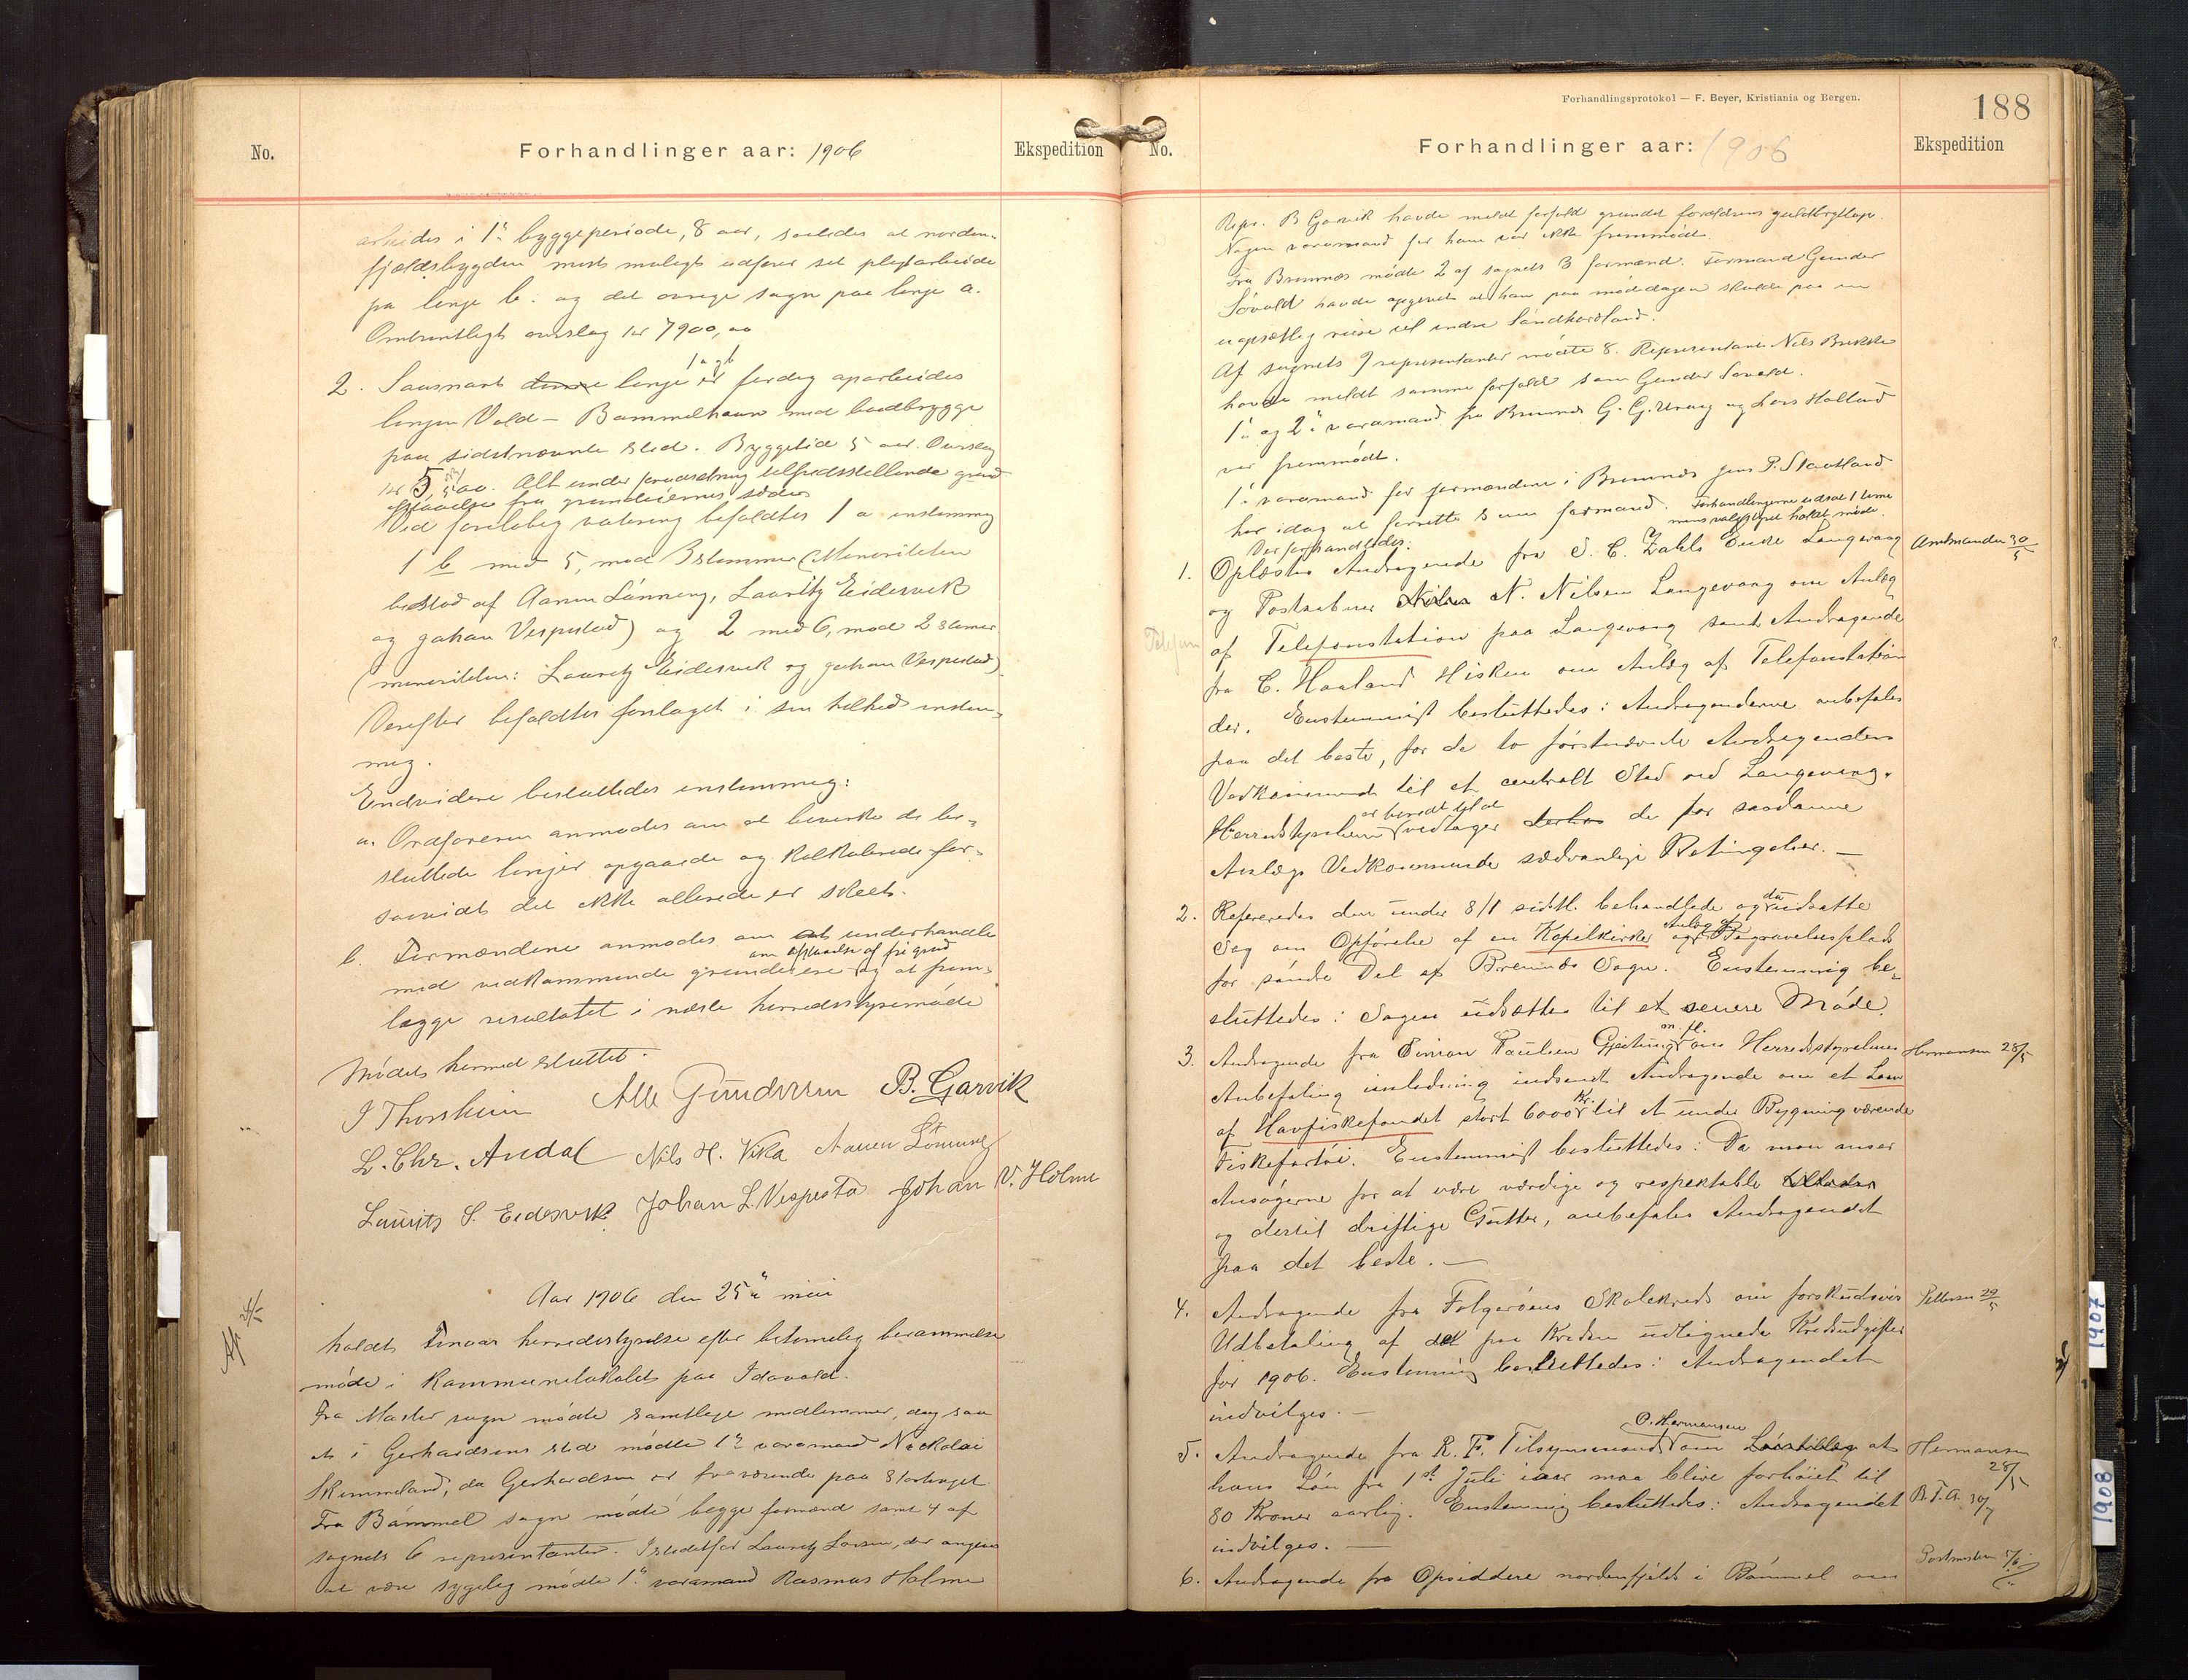 No.
Forhandlinger aar: 1906
Ekspedition
arbeides i 1ste byggeperiode, 8 aar, saaledes at norden-
fjeldsbygden mest muligt udfører sit pligtarbeide
pa linje b. og det øvrige sogn paa linje a.
Omtrentligt overslag kr 7900,00
2. Saasnart denne linje 1 a g b er færdig oparbeides
linjen Vold – Bømmelhavn med baadbrygge
paa sidstnævnte sted. Byggetid 5 aar. Overslag
kr 5,500. Alt under forudsætning tilfredsstillende grund
afstaaelse fra grundeiernes side
Ved foreløbig votering befaldtes 1 a enstemmig
1 b med 5, mod 3 stemmer (Minoriteten
bestod af Aamun Lønning, Lauritz Eidesvik
og Johan Vespestad) og 2 med 6, mod 2 stemmer
(minoriteten: Lauritz Eidesvik og Johan Vespestad).
Derefter befaldtes forslaget i sin helhed enstem-
mig.
Endvidere besluttedes enstemmig:
a. Ordføreren anmodes om at bevirke de be-
sluttede linjer opgaaede og kalkulerede for-
saavidt det ikke allerede er skeet.
b. Formændene anmodes om at underhandle
med vedkommende grundeiere om afstaaelse af fri grund og at frem-
lægge resultatet i næste herredsstyremøde
Mødet hermed sluttet.
I Thorsheim Alle Gundersen B. Garvik
L. Chr. Andal Nils H. Vika Aamun Lønning
Laurits S. Eidesvik Johan L Vespestad Johan V. Holme
Aar 1906 den 25de mai
holdt Finaas herredsstyrelse efter betimelig berammelse
møde i kommunelokalet paa Idavold.
Fra Moster sogn mødte samtlige medlemmer, dog saa
at i Gerhardsens sted mødte 1ste varamand Nickolai
Skimmeland, da Gerhardsen er fraværende paa Stortinget
Fra Bømmel sogn mødte begge formænd samt 4 af
sognets 6 repræsentanter. Istedetfor Lauritz Larsen, der angives
at være sygelig mødte 1ste varamand Rasmus Holme
Forhandlingsprotokol — F. Beyer, Kristiania og Bergen.
188
No.
Forhandlinger aar: 1906
Ekspedition
Repr. B Garvik havde meldt forfald grundet forældrens guldbryllup.
Nogen varamand for ham var ikke fremmødt.
Fra Bremnes mødte 2 af sognets 3 formænd. Formand Gunder
Søvold havde opgivet at han paa mødedagen skulde paa en
uopsættelig reise til indre Søndhordland.
Af sognets 9 repræsentanter mødte 8. Repræsentant Nils Brekke
havde meldt samme forfald som Gunder Søvold.
1ste og 2den varamand fra Bremnes G. G. Urang og Lars Hallund
var fremmødt.
1ste varamand for formændene i Bremnes Jens P. Stautland
har idag at forrette som formand. Forhandlingerne udsat 1 time
mens valgstyret holdt møde.
Der forhandledes:
1. Oplæstes Andragende fra S. C. Zahls Enke Langevaag
Amtmanden 30/5
og Postaabner N. Nilsen Langevaag om Anlæg
Telefon
af Telefonstation paa Langevaag samt Andragende
fra C. Haaland Hisken om Anlæg af Telefonstation
der. Enstemmigt besluttedes: Andragenderne anbefales
paa det beste, for de to førstnævnte Andragenders
Vedkommende til et centralt Sted ved Langevaag.
Herredstyrelsen er beredt til at vedtager de for saadanne
Anlægs Vedkommende sædvanlige Betingelser. —
2. Refereredes den under 8/1 sidstl. behandlede og da udsatte
Sag om Opførelse af en Kapelkirke og Anlæg af Begravelsesplads
for søndre Del af Bremnes Sogn. Enstemmig be-
sluttedes: Sagen udsættes til et senere Møde.
3. Andragende fra Simon Paulsen Gjeitung m. fl. om Herredsstyrelsens
Hermansen 28/5
Anbefaling i anledning indsendt Andragende om et Laan
af Havfiskefondet stort 6000 Kr. til et under Bygning værende
Fiskefartøi. Enstemmigt besluttedes: Da man anser
Ansøgerne for at være værdige og respektable
og dertil driftige Gutter, anbefales Andragendet
paa det beste. —
4. Andragende fra Folgerøens Skolekreds om forskudsvis
Pettersen 29/5
Udbetaling af det paa Kredsen udlignede Kredsudgifter
for 1906. Enstemmig besluttedes: Andragendet
indvilges. —
5. Andragende fra R. F. Tilsynsmand O. Hermansen om Løntillæg at
Hermansen 28/5
hans Løn fra 1st Juli iaar maa blive forhøiet til
80 Kroner aarlig. Enstemmig besluttedes: Andragendet
R. F. A. 30/7
indvilges. —
6. Andragende fra Opsiddere nordenfjelds i Bømmel om
1907
1908